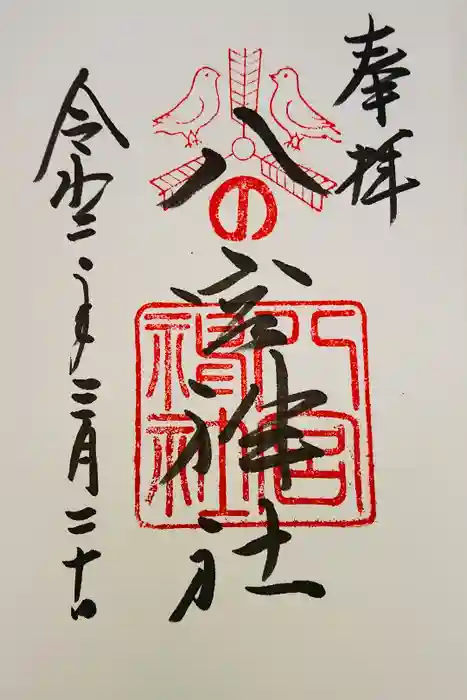 奉拝
八
の
宮神社
八宮
神社
令和二年三月二十日